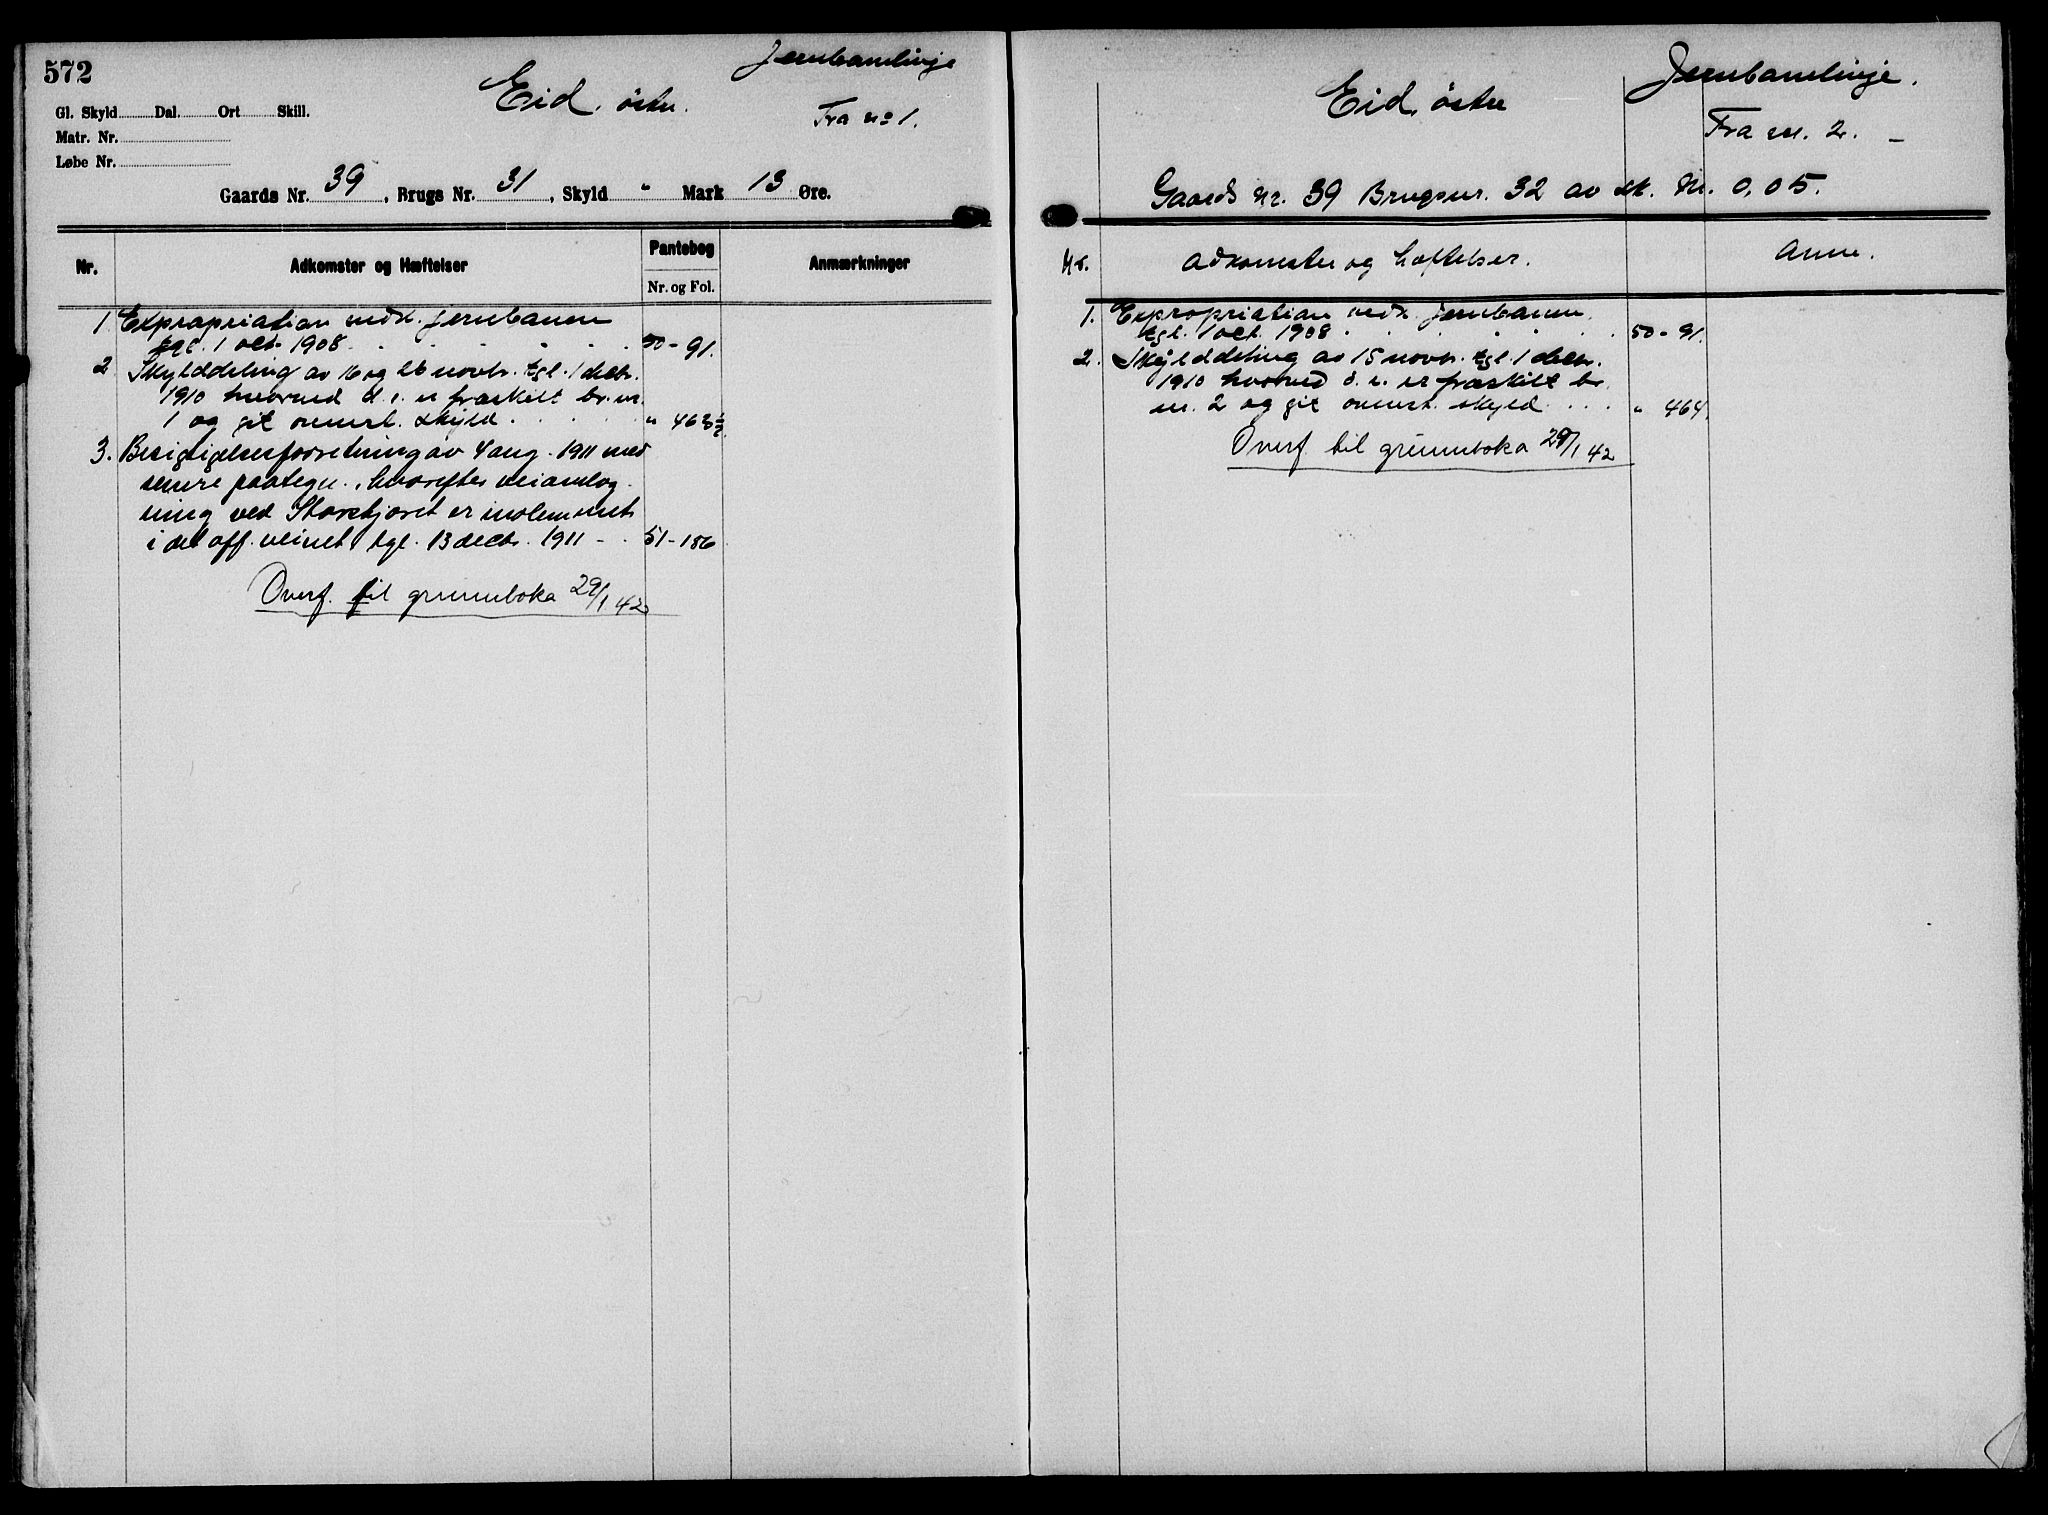 572
Gl. Skyld Dal. Ort Skill.
Matr. Nr.
Løbe Nr.
Eid, østre.
Jernbanelinje
Fra no 1.
Gaards Nr. 39, Brugs Nr. 31, Skyld " Mark 13 Øre.
Nr. Adkomster og Hæftelser Pantebog Nr. og Fol. Anmærkninger
1 Expropriation vedk. jernbanen
tgl. 1 oct. 1908 50-91.
2 Skylddeling av 16 og 26 novbr. tgl. 1 decbr.
1910 hvorved d. e. er fraskilt br. nr.
1 og git ovenst. skyld " 463 1/2
3. Besigtigelsesforretning av 4 aug. 1911 med
senere paategn., hvorefter veiomlæg-
ning ved Storetjoret er indlemmet
i det off. veinet, tgl. 13 decbr. 1911 - 51-186
Overf. til grunnboka 29/1 42
Eid, østre
Jernbanelinje.
Fra nr. 2.
Gaards nr. 39 Brugsnr. 32 av sk. M. 0,05.
Nr. Adkomster og hæftelser. Anm.
1. Expropriation vedk. jernbanen
tgl. 1 oct. 1908 50-91.
2. Skylddeling av 15 novbr. tgl. 1 decbr.
1910 hvorved d. e. er fraskilt br.
nr. 2 og git ovenst. skyld " 464
Overf. til grunnboka 29/1 42